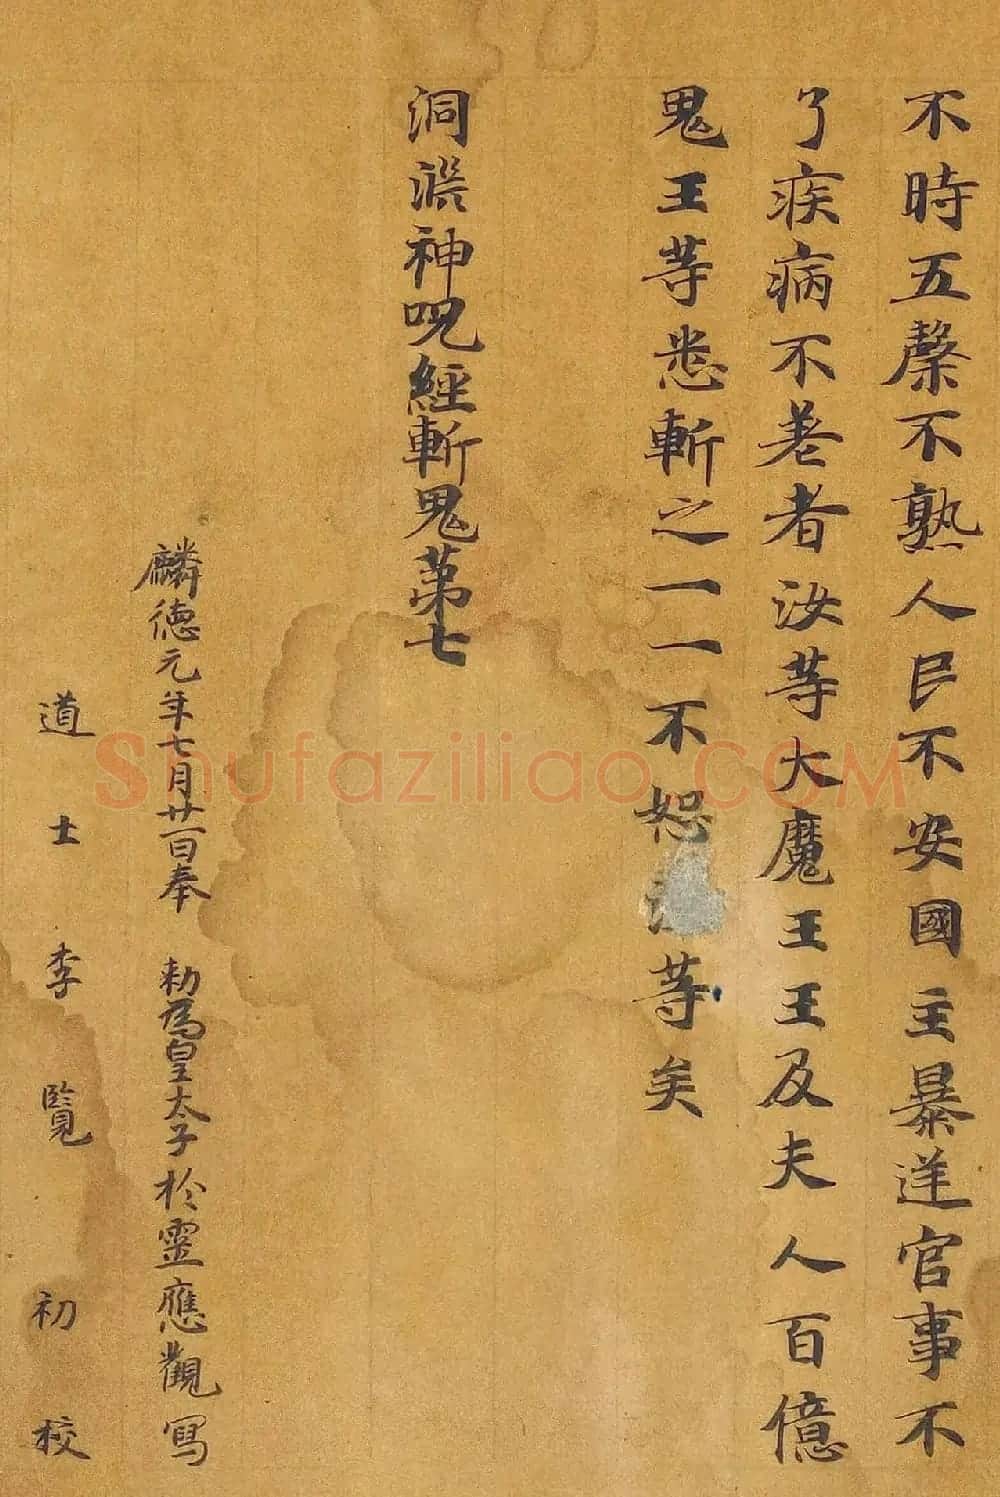 不時五穀不熟人民不安國主暴逆官事不
了疾病不差者汝等大魔王王及夫人百億
鬼王等悉斬之一一不恕等矣
洞淵神呪經斬鬼第七
麟德元年七月廿一日奉 勑為皇太子於靈應觀寫
道士李覽初校
Shufaziliao.COM